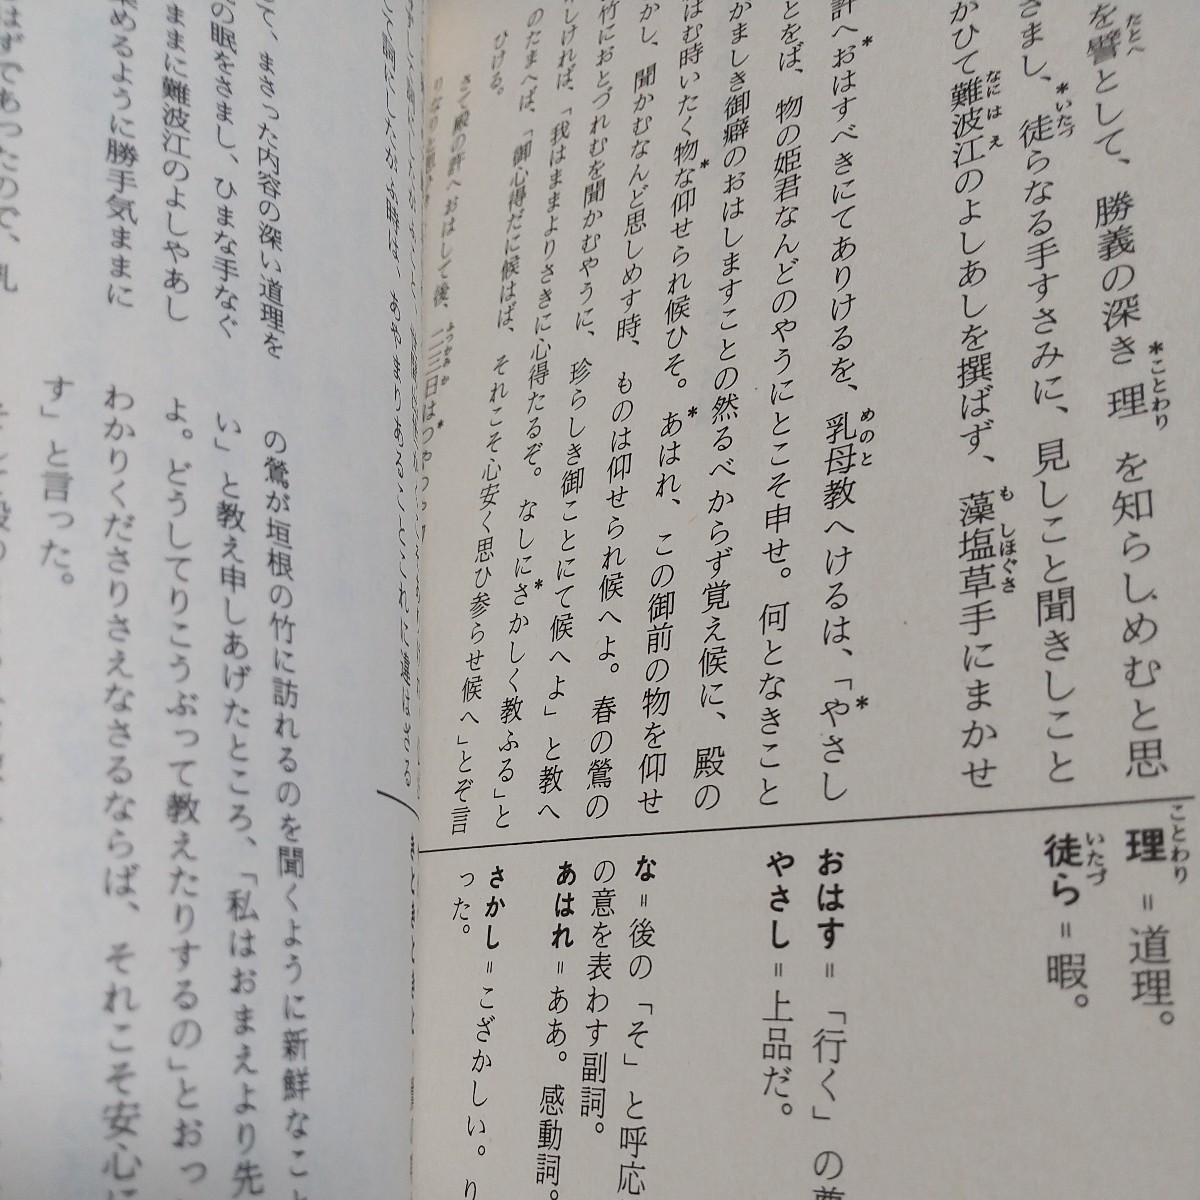 を譬として、勝義の深き理を知らしめむと思
さまし、徒らなる手すさみに、見しこと聞きしこと
かひて難波江のよしあしを撰ばず、藻塩草手にまかせ
許へおはすべきにてありけるを、乳母教へけるは、「やさし
とをば、物の姫君なんどのやうにとこそ申せ。何となきこと
かましき御癖のおはしますことの然るべからず覚え候に、殿の
はむ時いたく物な仰せられ候ひそ。あはれ、この御前の物を仰せ
かし、聞かむなんど思しめす時、ものは仰せられ候へよ。春の鶯の
竹におとづれむを聞かむやうに、珍らしき御ことにて候へよ」と教へ
しければ、「我はままよりさきに心得たるぞ。なしにさかしく教ふる」と
のたまへば、「御心得だに候はば、それこそ心安く思ひ参らせ候へ」とぞ言
ひける。
さて殿の許へおはして後、二三日は
理＝道理。
徒ら＝暇。
おはす＝「行く」の
やさし＝上品だ。
な＝後の「そ」と呼応
の意を表わす副詞。
あはれ＝ああ。感動詞。
さかし＝こざかしい。り
った。
て、まさった内容の深い道理を
の眠をさまし、ひまな手なぐ
ままに難波江のよしやあし
集めるように勝手気ままに
はずであったので、乳
の鶯が垣根の竹に訪れるのを聞くように新鮮なこと
い」と教え申しあげたところ、「私はおまえより先
よ。どうしてりこうぶって教えたりするの」とおっ
わかりくださりさえなさるならば、それこそ安心に
す」と言った。